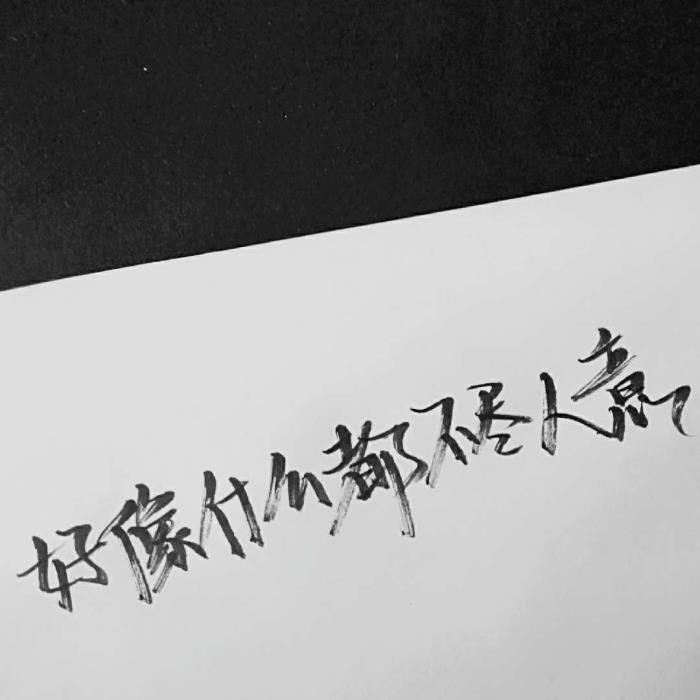 好像什么都不尽人意